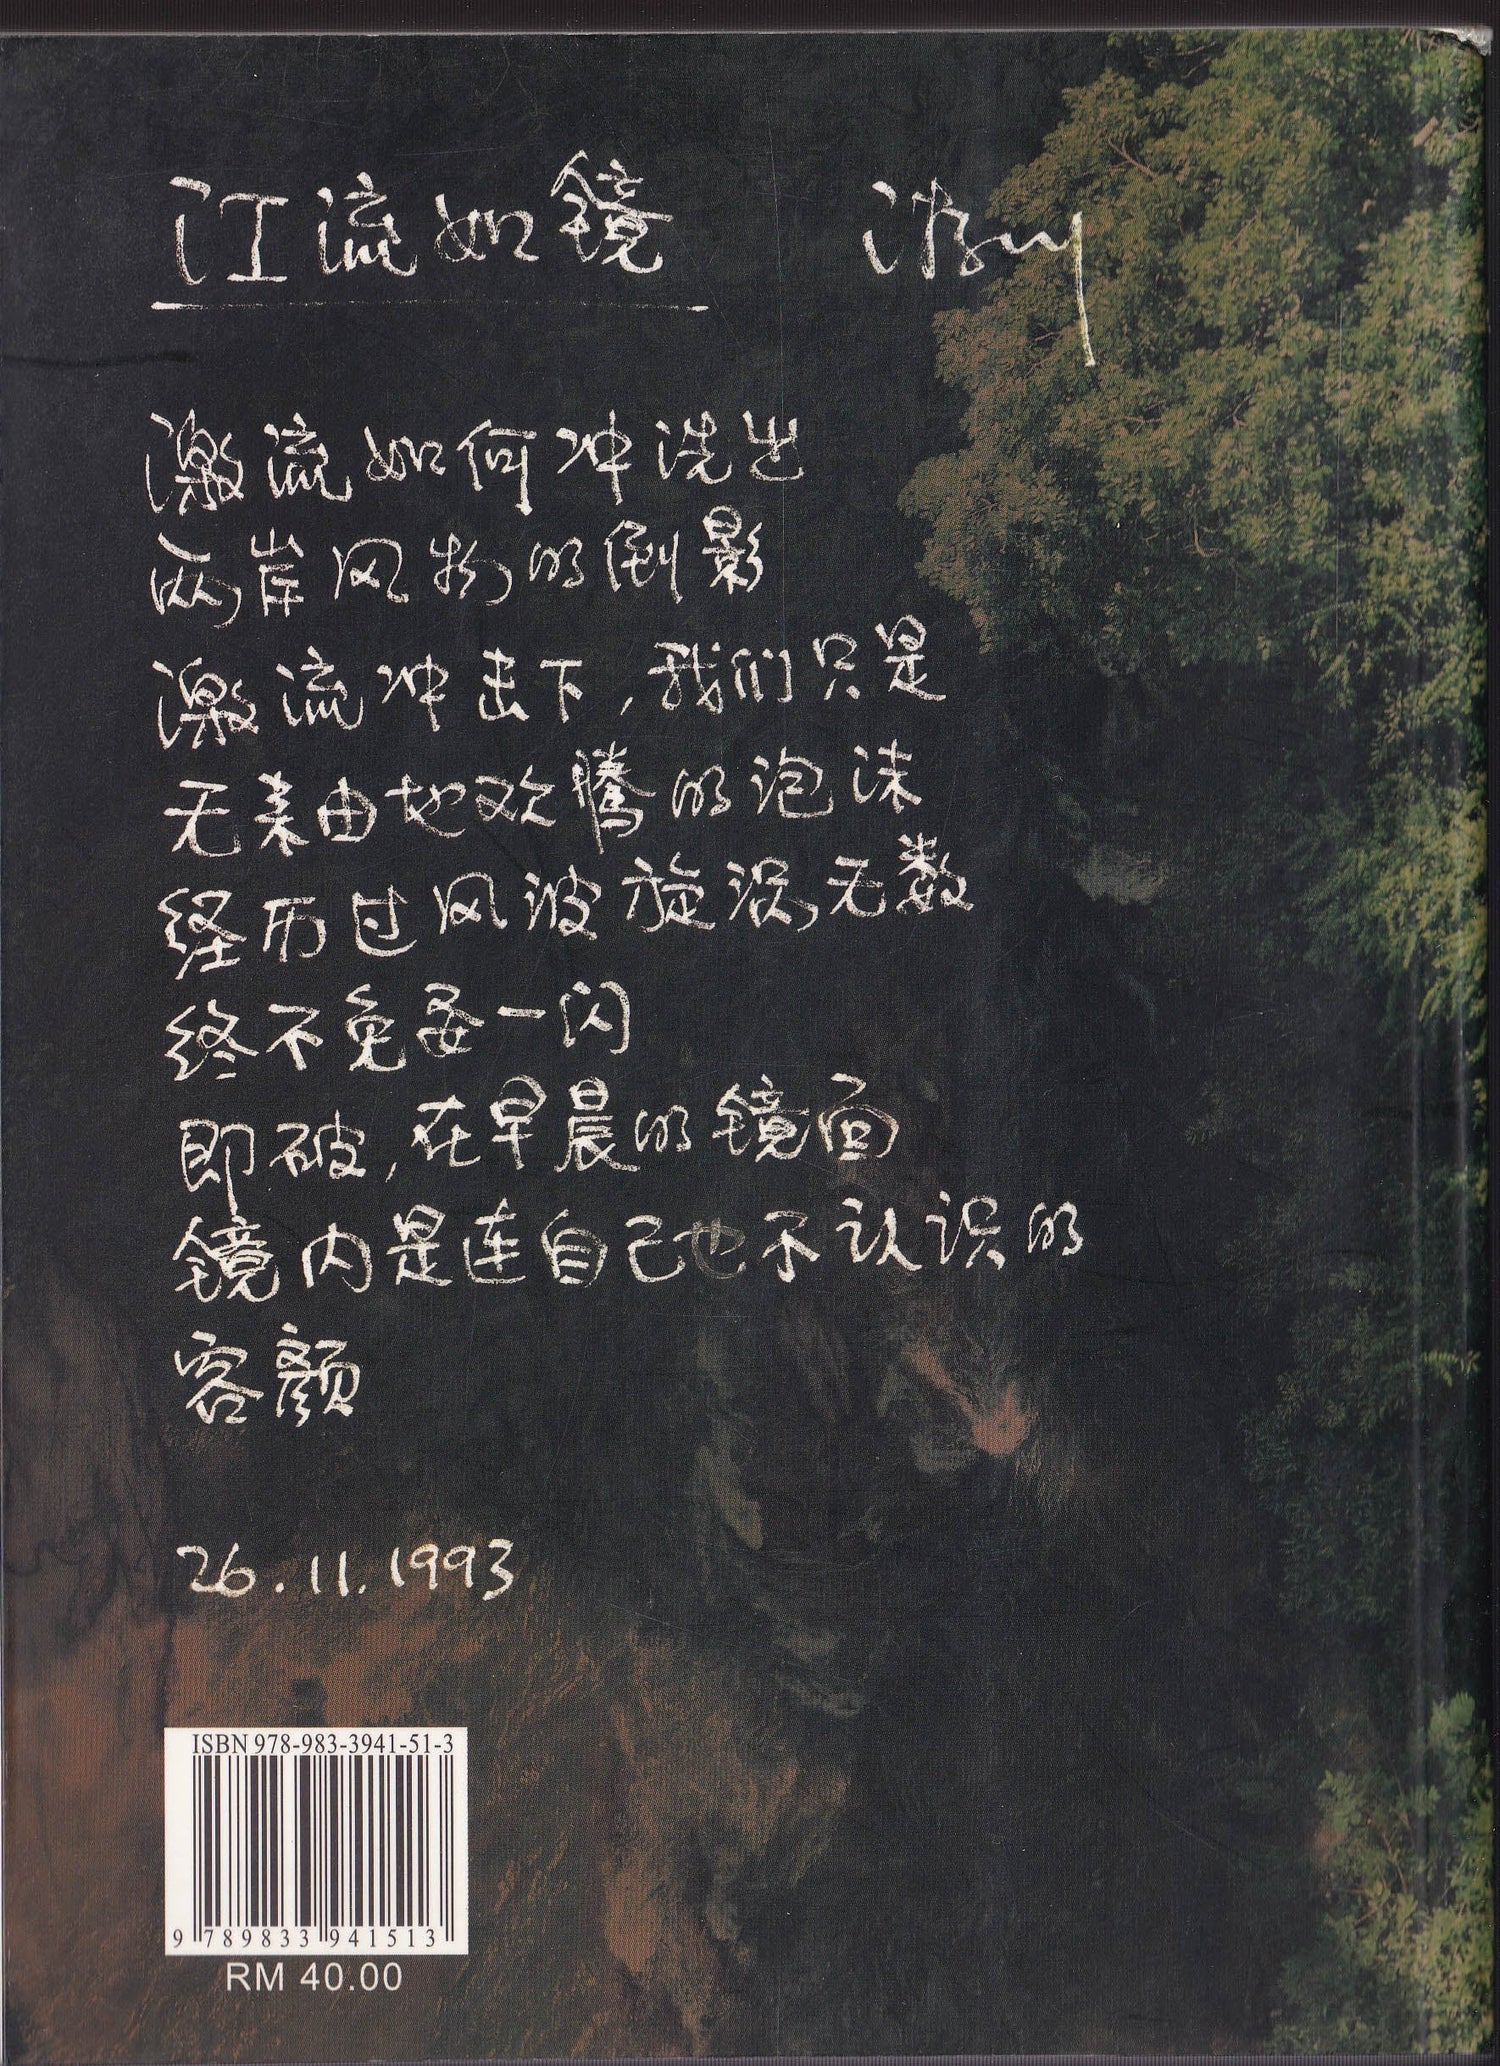 江流如镜 游川
激流如何冲洗出
两岸风物的倒影
激流冲击下，我们只是
无来由地欢腾的泡沫
经历过风波旋涡无数
终不免要一闪
即破，在早晨的镜面
镜内是连自己也不认识的
容颜
26.11.1993
ISBN 978-983-3941-51-3
9 789833 941513
RM 40.00